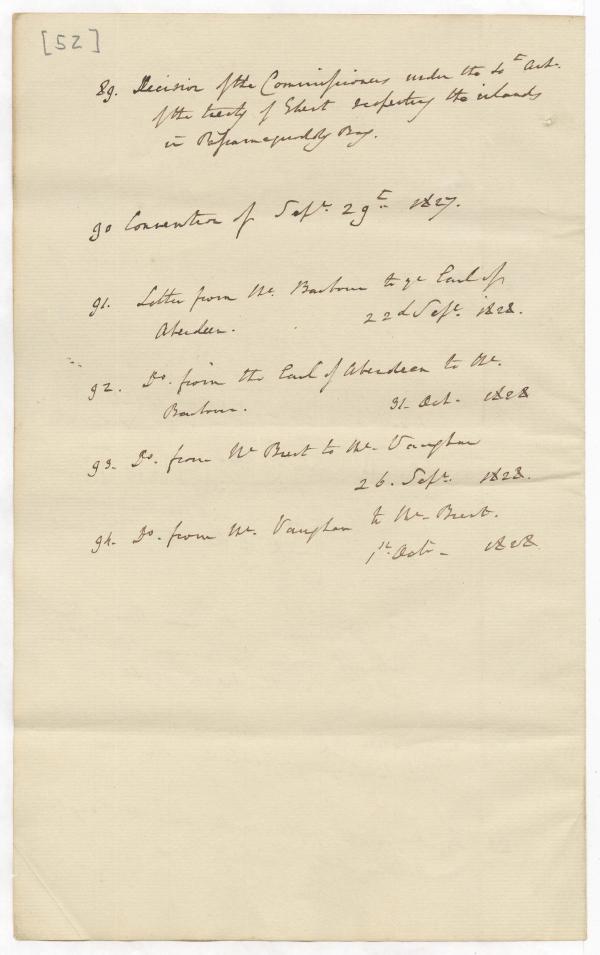 [52]
89. Decision of the Commissioners under the 4th Art.
of the treaty of Ghent respecting the islands
in Passamaquoddy Bay.
90 Convention of Sept. 29th 1827.
91. Letter from Mr. Barbour to ye Earl of
Aberdeen. 22d Sept. 1828.
92. Do. from the Earl of Aberdeen to Mr.
Barbour. 31. Oct. 1828
93. Do. from Mr Brent to Mr. Vaughan
26. Sept. 1828.
94. Do. from Mr. Vaughan to Mr. Brent.
1st Oct. 1828